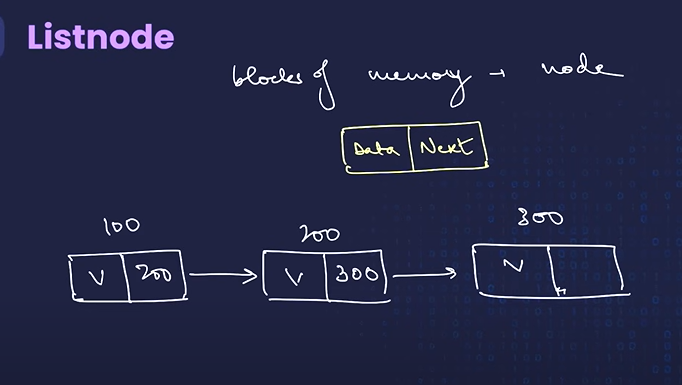 Listnode
blocks of memory → node
Data Next
100 200 300
V 200 V 300 V